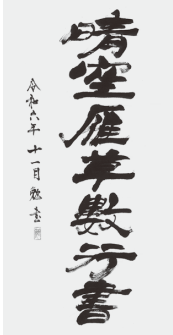 晴空雁草數行書
令和六年十一月